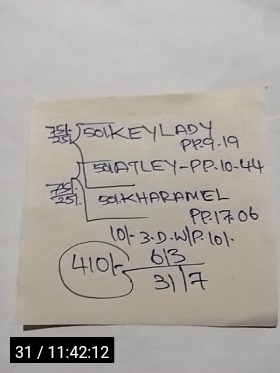 75/- 50/- KEYLADY
25/- PP.9.19
50/- ATLEY-PP.10-44
75/- 50/- KHARAMEL
25/- PP.17.06
10/- 3.D.W/P.10/-
410/- 6/3
31/7
31 / 11:42:12